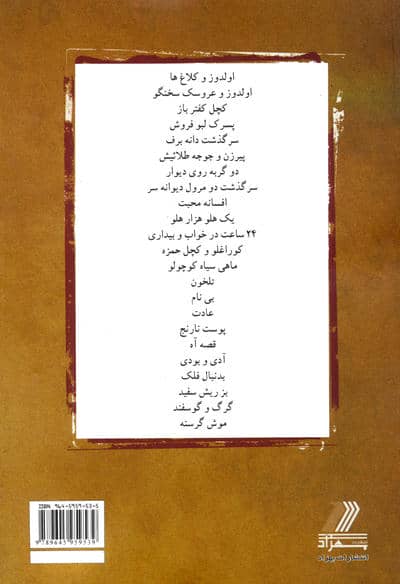 اولدوز و کلاغ ها
اولدوز و عروسک سخنگو
کچل کفتر باز
پسرک لبو فروش
سرگذشت دانه برف
پیرزن و جوجه طلائیش
دو گربه روی دیوار
سرگذشت دو مرول دیوانه سر
افسانه محبت
یک هلو هزار هلو
۲۴ ساعت در خواب و بیداری
کوراغلو و کچل حمزه
ماهی سیاه کوچولو
تلخون
بی نام
عادت
پوست نارنج
قصه آه
آدی و بودی
بدنبال فلک
بز ریش سفید
گرگ و گوسفند
موش گرسنه
بهزاد
انتشارات بهزاد
9789645959538